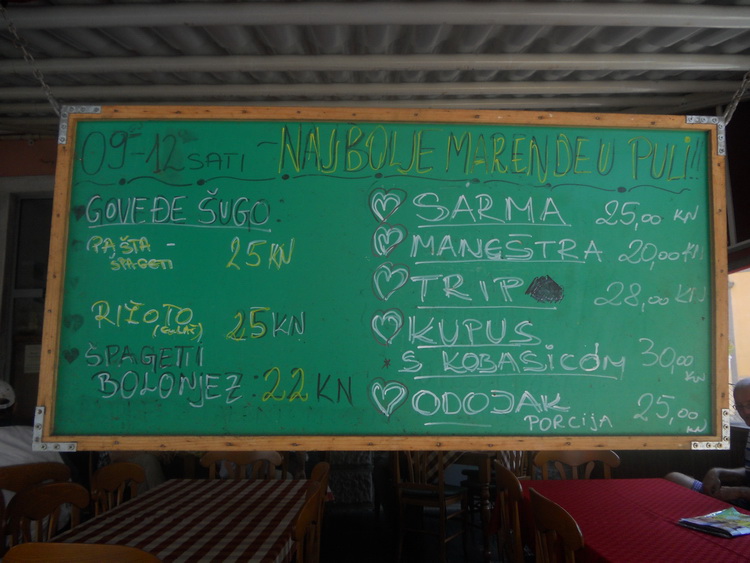 09-12 SATI - NAJBOLJE MARENDE U PULI!!
GOVEĐE ŠUGO
PAŠTA - 25 KN
ŠPAGETI
RIŽOTO 25 KN
(GULAŠ)
ŠPAGETI
BOLONJEZ 22 KN
SARMA 25,00 KN
MANEŠTRA 20,00 KN
TRIP 28,00 KN
KUPUS
S KOBASICOM 30,00 KN
ODOJAK 25,00 KN
PORCIJA